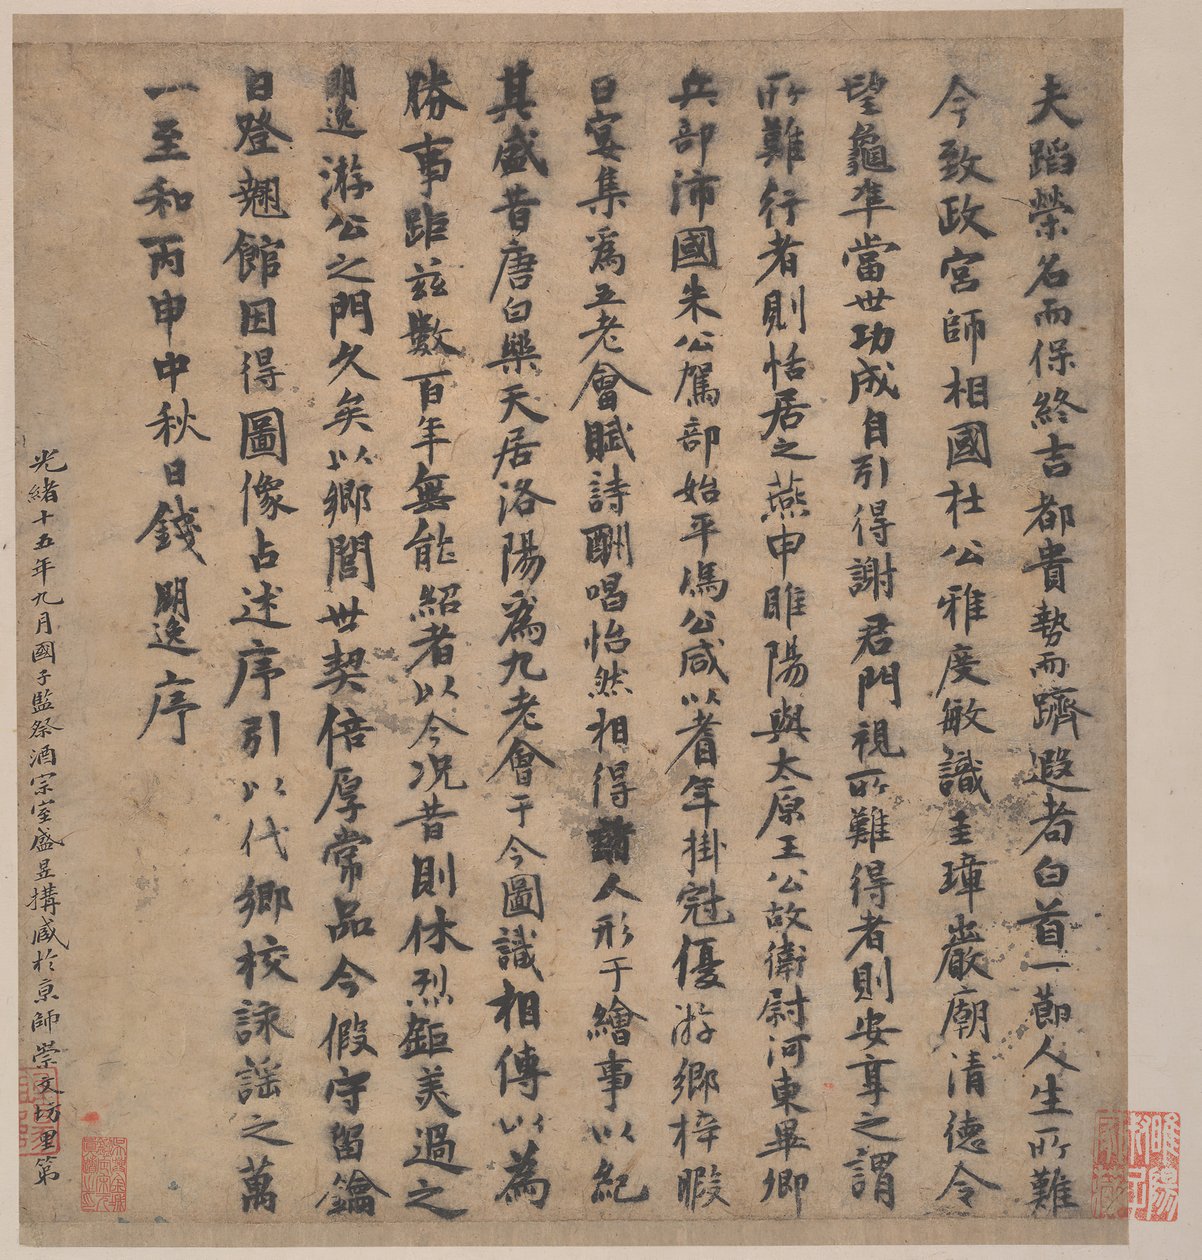 夫蹈榮名而保終吉都貴勢而躋遐耇白首一節人生所難
今致政宮師相國杜公雅度敏識圭璋巖廟清德令
望龜準當世功成自引得謝君門視所難得者則安享之謂
所難行者則恬居之燕申睢陽與太原王公故衛尉河東畢卿
兵部沛國朱公駕部始平馮公咸以耆年掛冠優游鄉梓暇
日宴集爲五老會賦詩酬唱怡然相得諸人形于繪事以紀
其盛昔唐白樂天居洛陽爲九老會于今圖識相傳以為
勝事距茲數百年無能紹者以今況昔則休烈鉅美過之
明逸游公之門久矣以鄉閭世契倍厚常品今假守留鑰
日登翹館因得圖像占述序引以代鄉校詠謡之萬
一至和丙申中秋日錢明逸序
光緒十五年九月國子監祭酒宗室盛昱搆藏於京師崇文坊里第
睢陽